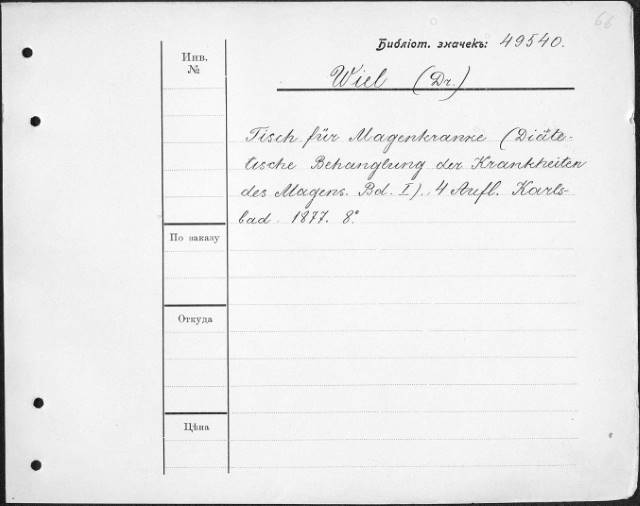 66
Библіот. значекъ: 49540.
Инв.
№
Wiel (Dr)
Tisch für Magenkranke (Diäte-
tische Behanglung der Krankheiten
des Magens. Bd. I). 4 Aufl. Karls-
bad. 1877. 8°
По заказу
Откуда
Цѣна